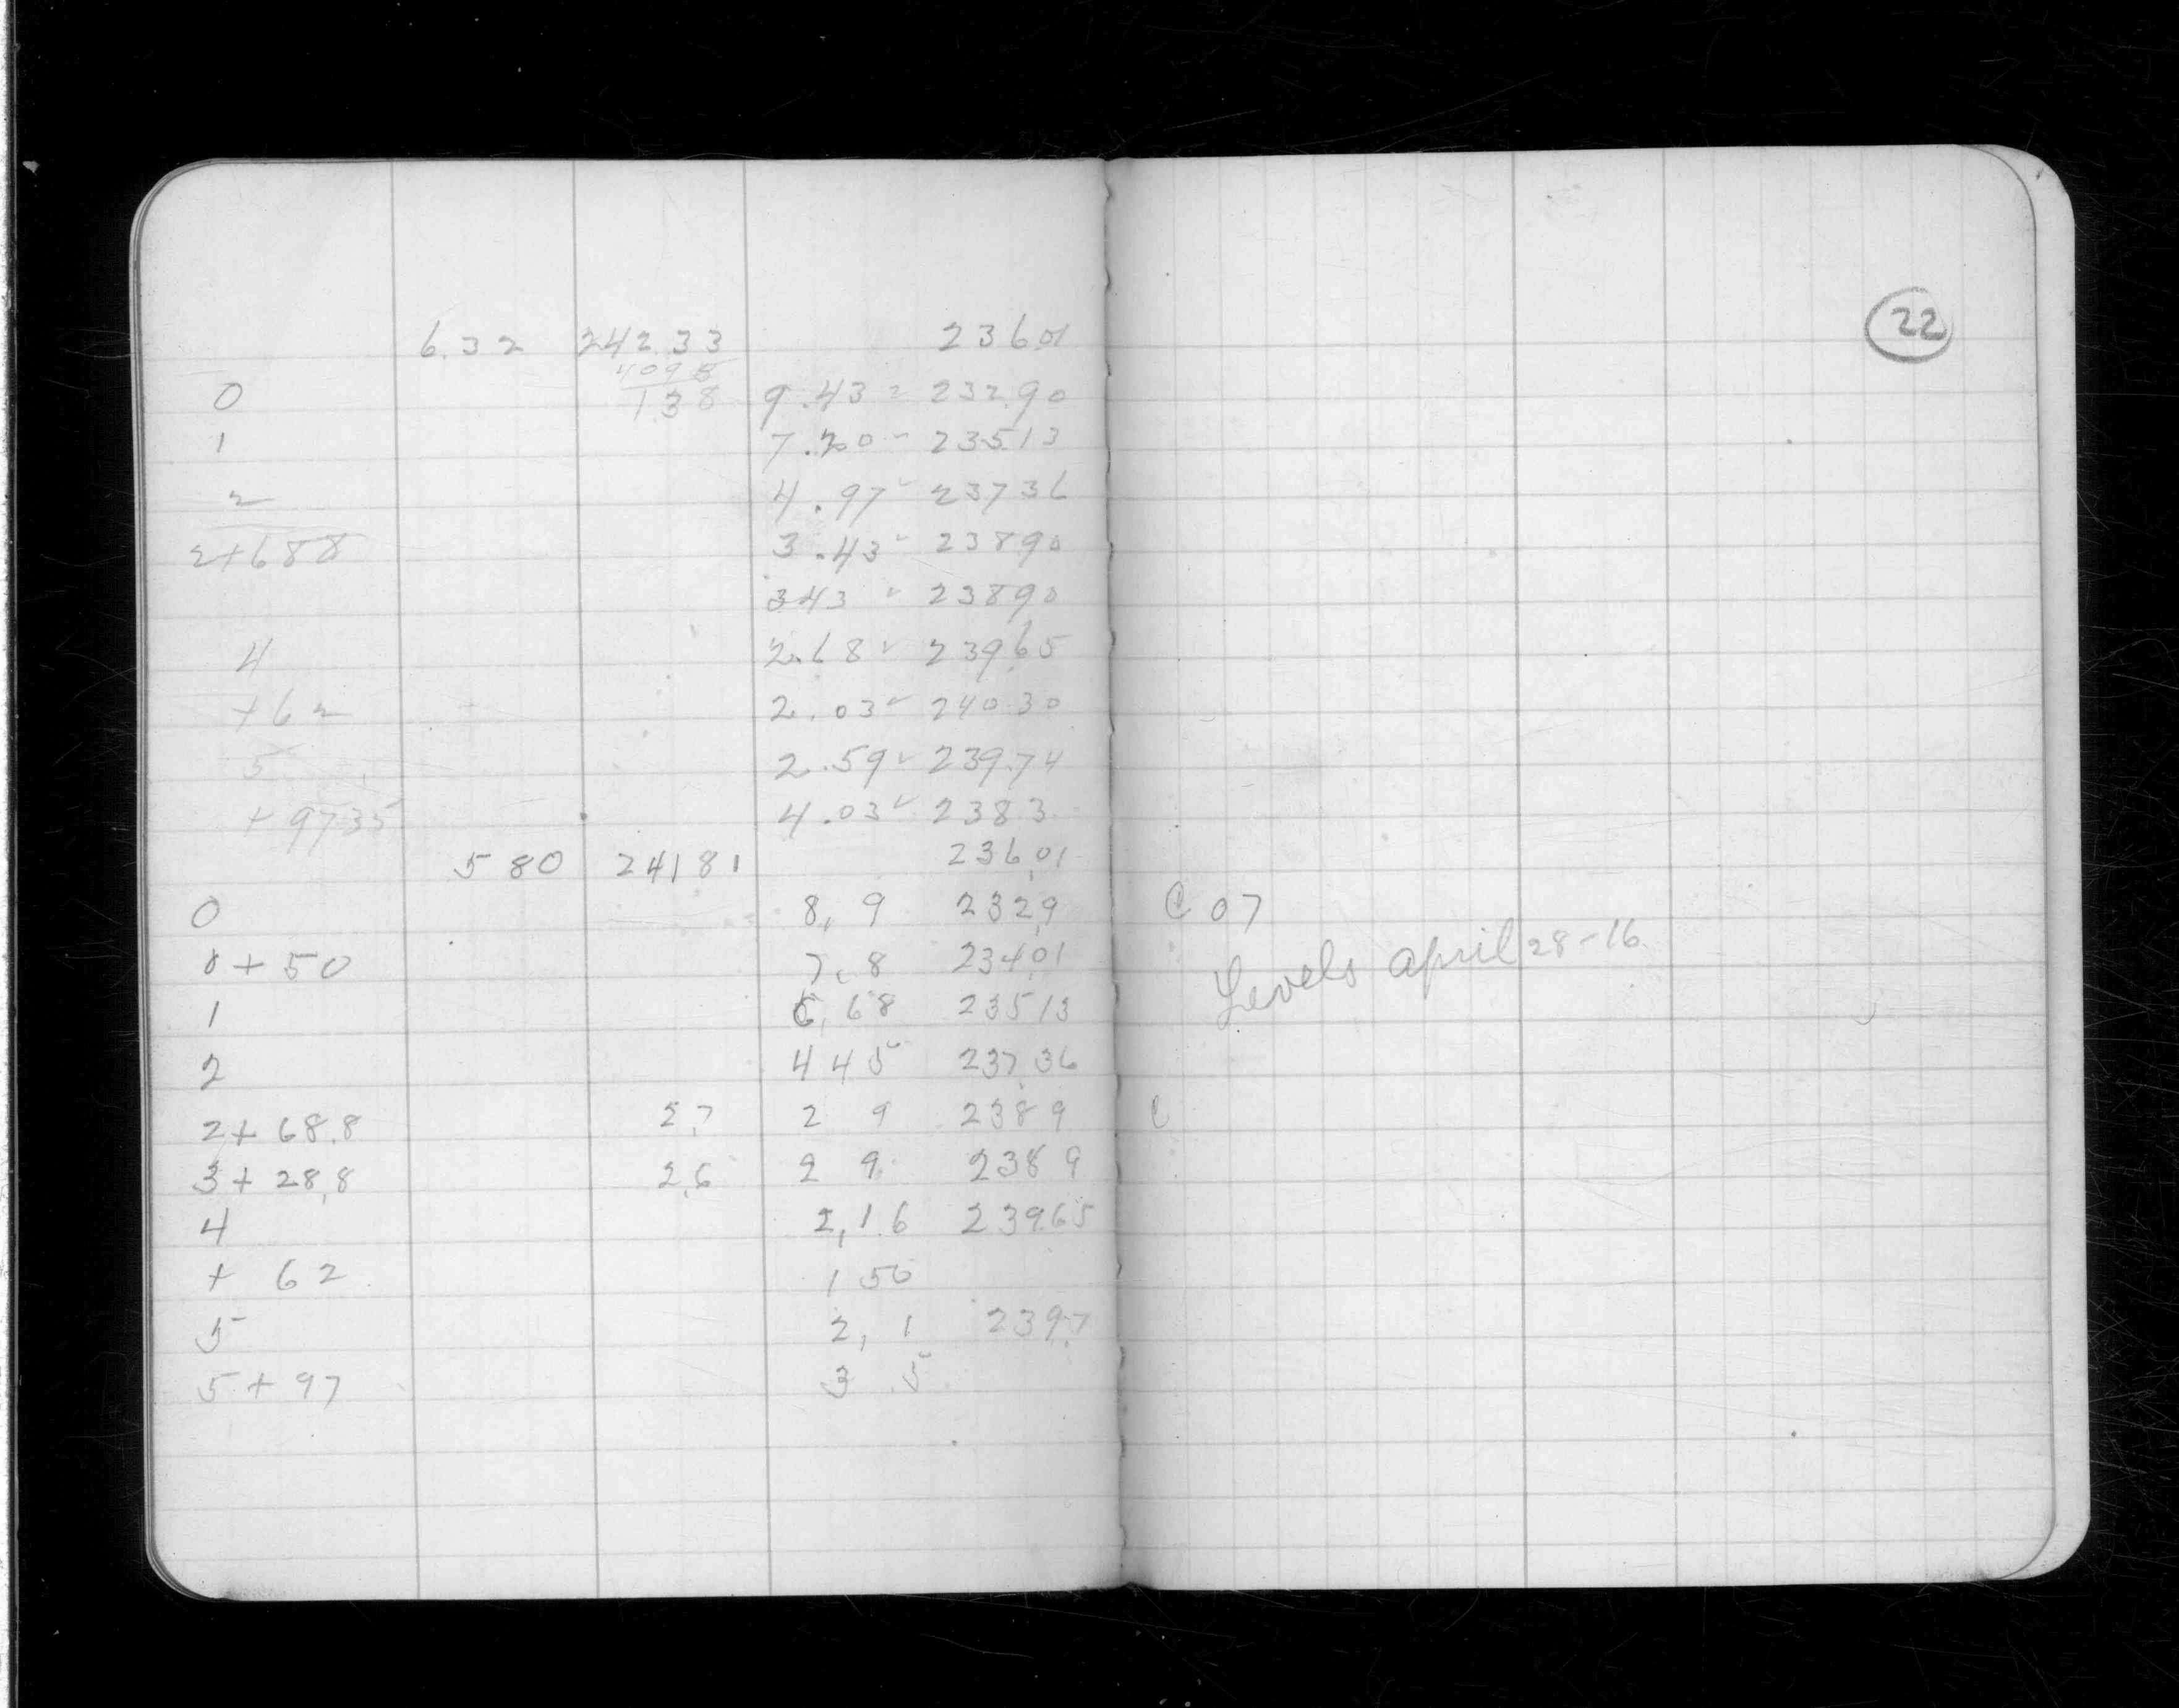 22
6.32 242.33 23601
4098
0 138 9.43 232.90
1 7.20 23513
2 4.97 23736
2+688 3.43 23890
343 23890
4 2.68 23965
+62 2.03 24030
5 2.59 239.74
+9735 4.03 2383
580 24181 236,01
0 8,9 2329 C 07
0+50 7.8 23401 Levels April 28-16
1 6,68 23513
2 445 23736
2+68.8 2.7 2 9 2389 C
3+28,8 2.6 2 9 2389
4 2,16 23965
+ 62 150
5 2,1 2397
5+97 3 5